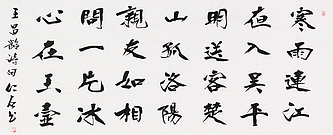 寒雨連江
夜入吴平
明送客楚
山孤洛陽
親友如相
問一片冰
心在玉壺
王昌齡詩句